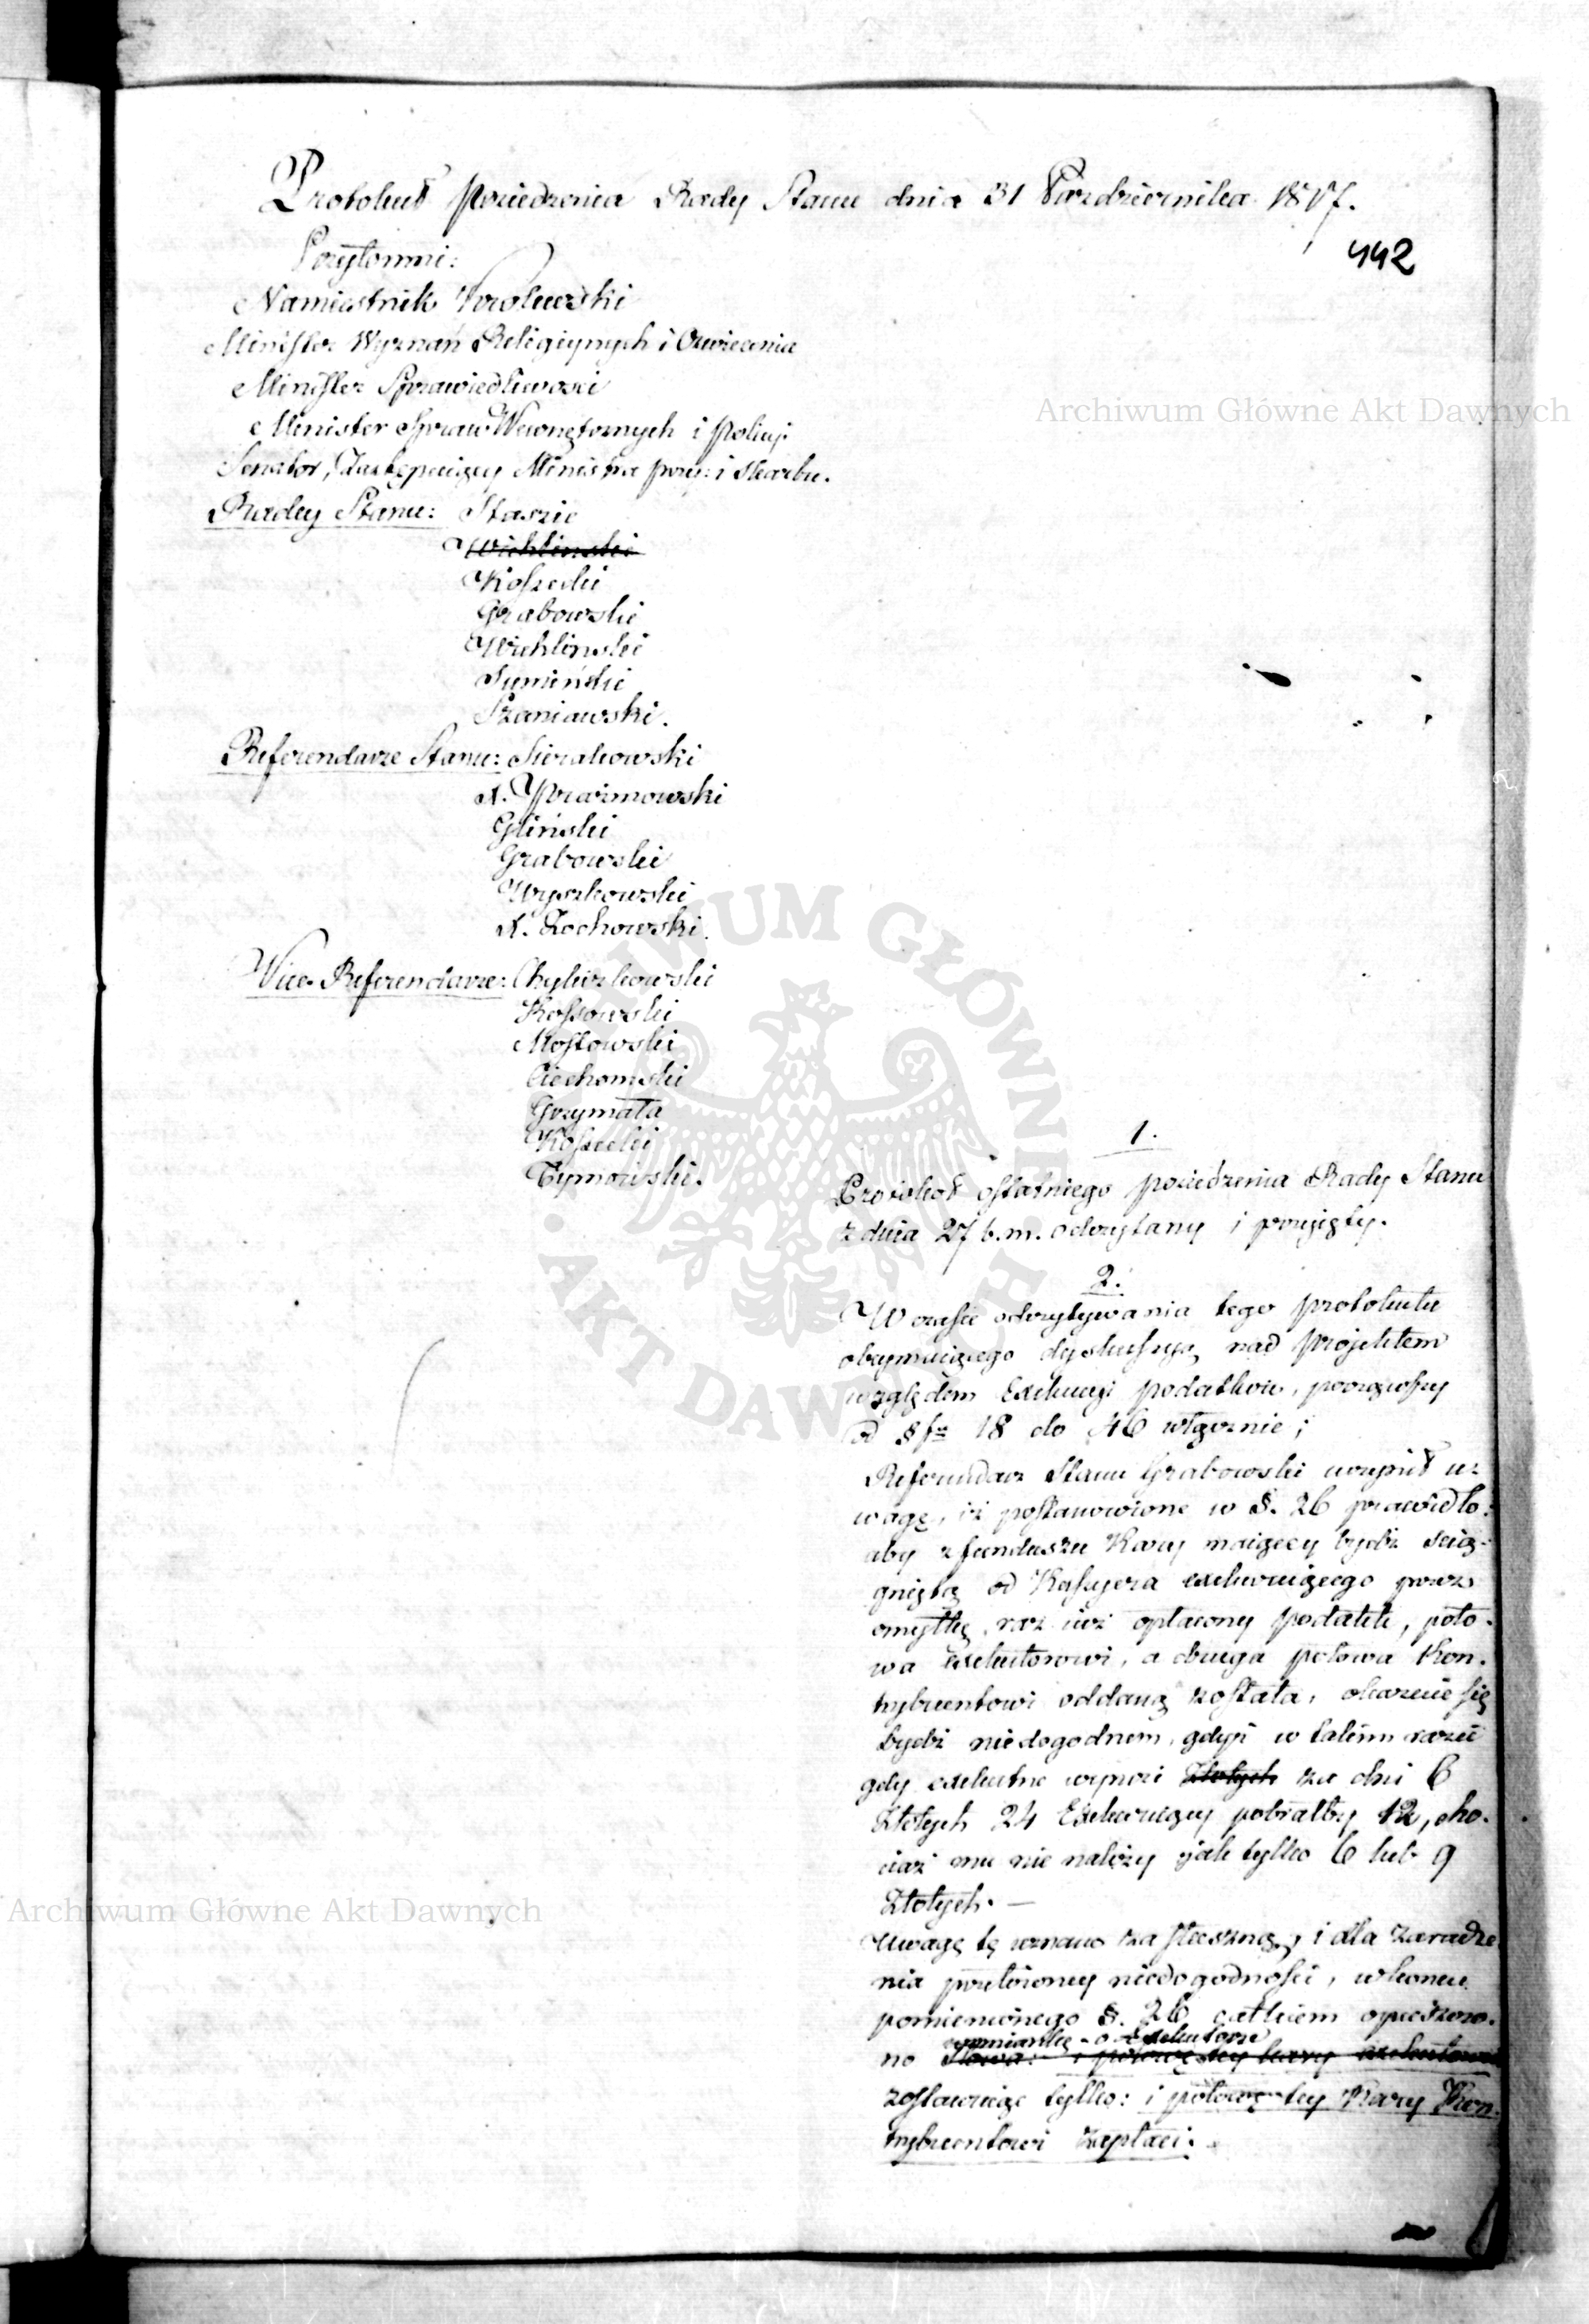 Protokuł posiedzenia Rady Stanu dnia 31 Października 1817.
442
Przytomni:
Namiestnik Krolewski
Minister Wyznań Religiynych i Oświecenia
Minister Sprawiedliwości
Minister Spraw Wewnętrznych i Policyi
Senator, Zastępuiący Ministra przy: i Skarbu.
Radcy Stanu: Staszic
Wichlinski
Koszecki
Grabowski
Wichlinski
Sumiński
Szaniawski.
Referendarze Stanu: Sierakowski
X. Prażmowski
Gliński
Grabowski
Wyszkowski
X. Żochowski.
Vice-Referendarze: Chyliczkowski
Kossowski
Mostowski
Ciechomski
Grzymała
Koszecki
Tymowski.
1.
Protokuł ostatniego posiedzenia Rady Stanu
z dnia 27 b.m. odczytany i przyięty.
2.
W czasie odczytywania tego protokułu
obeymuiącego dyskussyą nad projektem
względem Exekucyi podatkow, począwszy
od §fu 18 do 46 włącznie;
Referendarz Stanu Grabowski uczynił u-
wagę, iż postanowione w §. 26 prawidło:
aby z funduszu Kary maiącey bydź ścią-
gniętą od Kassyera exekwuiącego przez
omyłkę, raz iuż opłacony podatek, poło-
wa exekutorowi, a druga połowa Kon-
trybuentowi oddaną została, okazuie się
bydź niedogodnem, gdyż w takim razie
gdy exekutne wynosi Złotych za dni 6
Złotych 24 Exekwuiący pobrałby 12, cho-
ciaż mu nie należy jak tylko 6 lub 9
Złotych. —
Uwagę tę uznano za słuszną, i dla zaradze-
nia przełożoney niedogodności, w koncu
pomienionego §. 26 całkiem opuszczo-
wzmiankę o Exekutorze
no słowa: i połowę tey kary exekutorowi
zostawuiąc tylko: i połowę tey Kary Kon-
trybuentowi zapłaci.
Archiwum Główne Akt Dawnych
Archiwum Główne Akt Dawnych
ARCHIWUM GŁÓWNE · AKT DAWNYCH ·